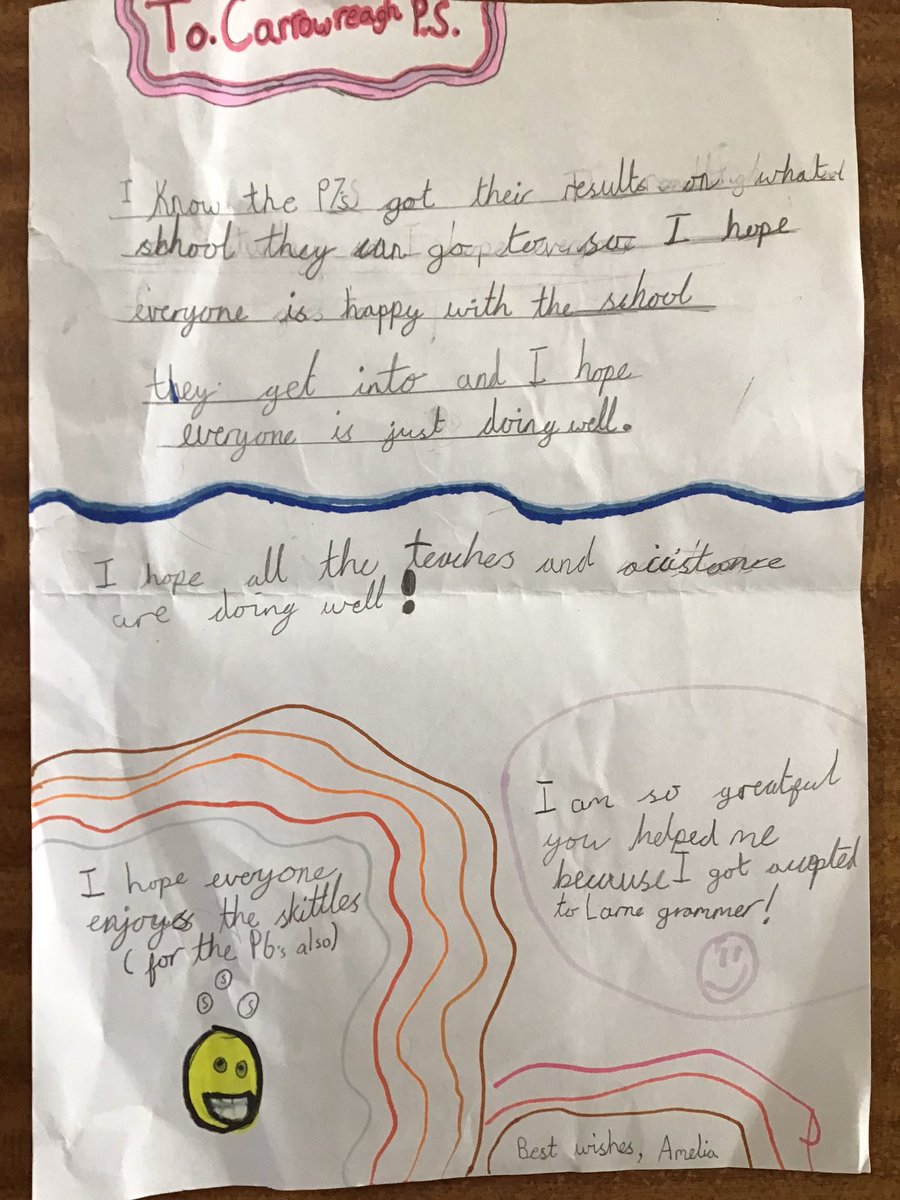 To. Carrowreagh P.S.
I know the P7's got their results on what
school they can go to so I hope
everyone is happy with the school
they get into and I hope
everyone is just doing well.
I hope all the teaches and
are doing well!
I hope everyone
enjoys the skittles
(for the P6's also)
S
S S
I am so greatful
you helped me
because I got accepted
to Larne grammer!
Best wishes, Amelia